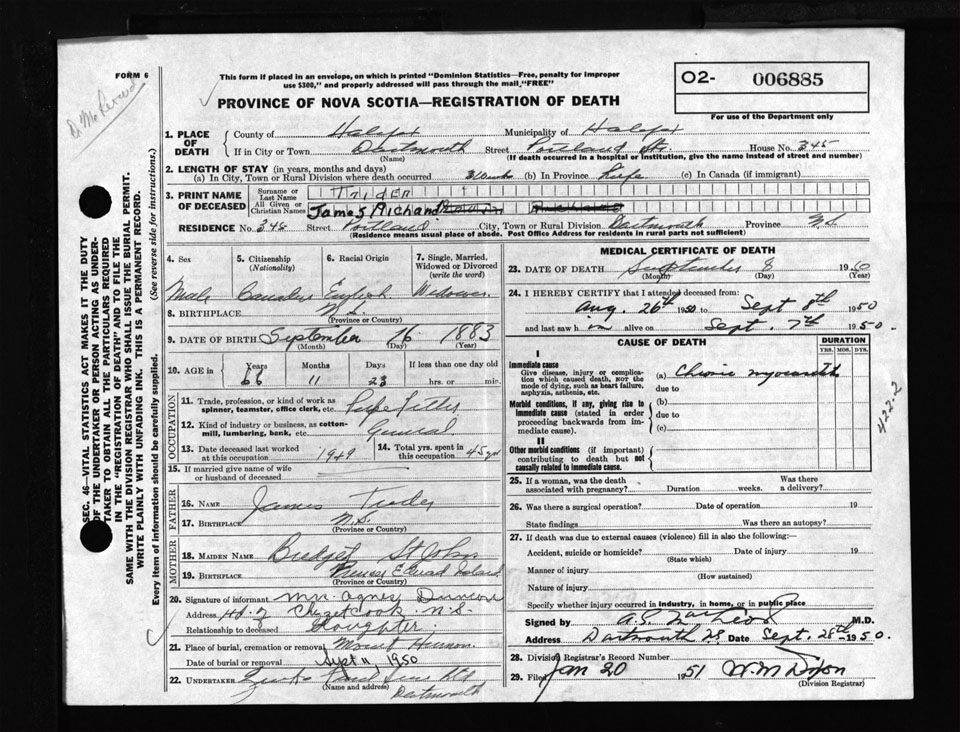 FORM 6
D. McLeod
This form if placed in an envelope, on which is printed "Dominion Statistics—Free, penalty for improper
use $300," and properly addressed will pass through the mail "FREE"
O2- 006885
For use of the Department only
PROVINCE OF NOVA SCOTIA—REGISTRATION OF DEATH
SEC. 46—VITAL STATISTICS ACT MAKES IT THE DUTY
OF THE UNDERTAKER OR PERSON ACTING AS UNDER-
TAKER TO OBTAIN ALL THE PARTICULARS REQUIRED
IN THE "REGISTRATION OF DEATH" AND TO FILE THE
SAME WITH THE DIVISION REGISTRAR WHO SHALL ISSUE THE BURIAL PERMIT.
WRITE PLAINLY WITH UNFADING INK. THIS IS A PERMANENT RECORD.
Every item of information should be carefully supplied. (See reverse side for instructions.)
1. PLACE OF DEATH
County of Halifax Municipality of Halifax
If in City or Town Dartmouth Street Portland St. House No. 345
(Name) (If death occurred in a hospital or institution, give the name instead of street and number)
2. LENGTH OF STAY (in years, months and days)
(a) In City, Town or Rural Division where death occurred (b) In Province Life (c) In Canada (if immigrant)
3. PRINT NAME OF DECEASED
Surname or Last Name Trider
All Given or Christian Names James Richard
RESIDENCE No. 345 Street Portland City, Town or Rural Division Dartmouth Province N.S.
(Residence means usual place of abode. Post Office Address for residents in rural parts not sufficient)
4. Sex 5. Citizenship (Nationality) 6. Racial Origin 7. Single, Married, Widowed or Divorced (write the word)
Male Canadian English Widower
8. BIRTHPLACE N.S.
(Province or Country)
9. DATE OF BIRTH September 16 1883
(Month) (Day) (Year)
10. AGE in Years Months Days If less than one day old
66 11 23 hrs. or min.
OCCUPATION
11. Trade, profession, or kind of work as
spinner, teamster, office clerk, etc. Pipe fitter
12. Kind of industry or business, as cotton-
mill, lumbering, bank, etc. General
13. Date deceased last worked at this occupation 1949 14. Total yrs. spent in this occupation 45 yrs
15. If married give name of wife
or husband of deceased
FATHER
16. NAME James Trider
17. BIRTHPLACE N.S.
(Province or Country)
MOTHER
18. MAIDEN NAME Bridget St John
19. BIRTHPLACE Prince Edward Island
(Province or Country)
20. Signature of informant Mrs. Agnes
Address Chezetcook N.S.
Relationship to deceased Daughter
21. Place of burial, cremation or removal Mount Hermon
Date of burial or removal Sept 11, 1950
22. UNDERTAKER
(Name and address) Dartmouth
MEDICAL CERTIFICATE OF DEATH
23. DATE OF DEATH September 8 1950
(Month) (Day) (Year)
24. I HEREBY CERTIFY that I attended deceased from:
Aug. 26th 1950 to Sept 8th 1950
and last saw him alive on Sept. 7th 1950.
CAUSE OF DEATH DURATION
YRS. MOS. DYS.
I
Immediate cause
Give disease, injury or complica-
tion which caused death, not the
mode of dying, such as heart failure,
asphyxia, asthenia, etc.
(a) Chronic myocarditis
due to
Morbid conditions, if any, giving rise to
immediate cause (stated in order
proceeding backwards from im-
mediate cause).
(b)
due to
(c)
II
Other morbid conditions (if important)
contributing to death but not
causally related to immediate cause.
422.2
25. If a woman, was the death Was there
associated with pregnancy? Duration weeks. a delivery?
26. Was there a surgical operation? Date of operation 19
State findings Was there an autopsy?
27. If death was due to external causes (violence) fill in also the following:—
Accident, suicide or homicide? Date of injury 19
(State which)
Manner of injury
(How sustained)
Nature of injury
Specify whether injury occurred in industry, in home, or in public place
Signed by A.G. MacLeod M.D.
Address Dartmouth N.S. Date Sept. 28th 1950.
28. Division Registrar's Record Number
29. Filed Jan 20 1951 W. M. Dixon
(Division Registrar)